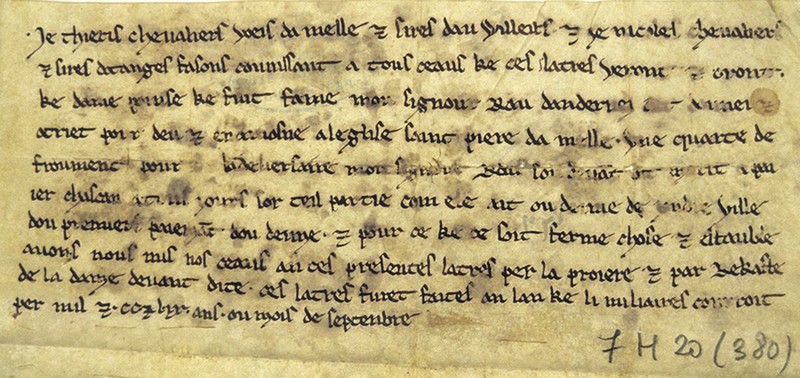 Je thieris chevaliers voeis da melle ⁊ sires dau Villeirs ⁊ je nicoles chevaliers
⁊ sires dotanges fasons conissant a tous ceaus ke ces latres veront ⁊ oront
ke dame ke fuit fame mon signour Rau dandernei at donei ⁊
otriet pour deu ⁊ en amosne a leglise saint piere da melle vne quarte de
froument pour mon signour Rau son at a pa
ier chascan jours sor teil partie com ele ait ou deime de Ville
dou premier paiemāt dou deime ⁊ pour ce ke ce soit ferme chose ⁊ estauble
avons nous mis nos ceaus an ces presentes latres per la proiere ⁊ par Rekaste
de la dame devant dite ces latres furēt faites an lan ke li miliaires corroit
per mil ⁊ .cc⁊ lxx. ans. ou mois de septenbre
7 H 20 (380)